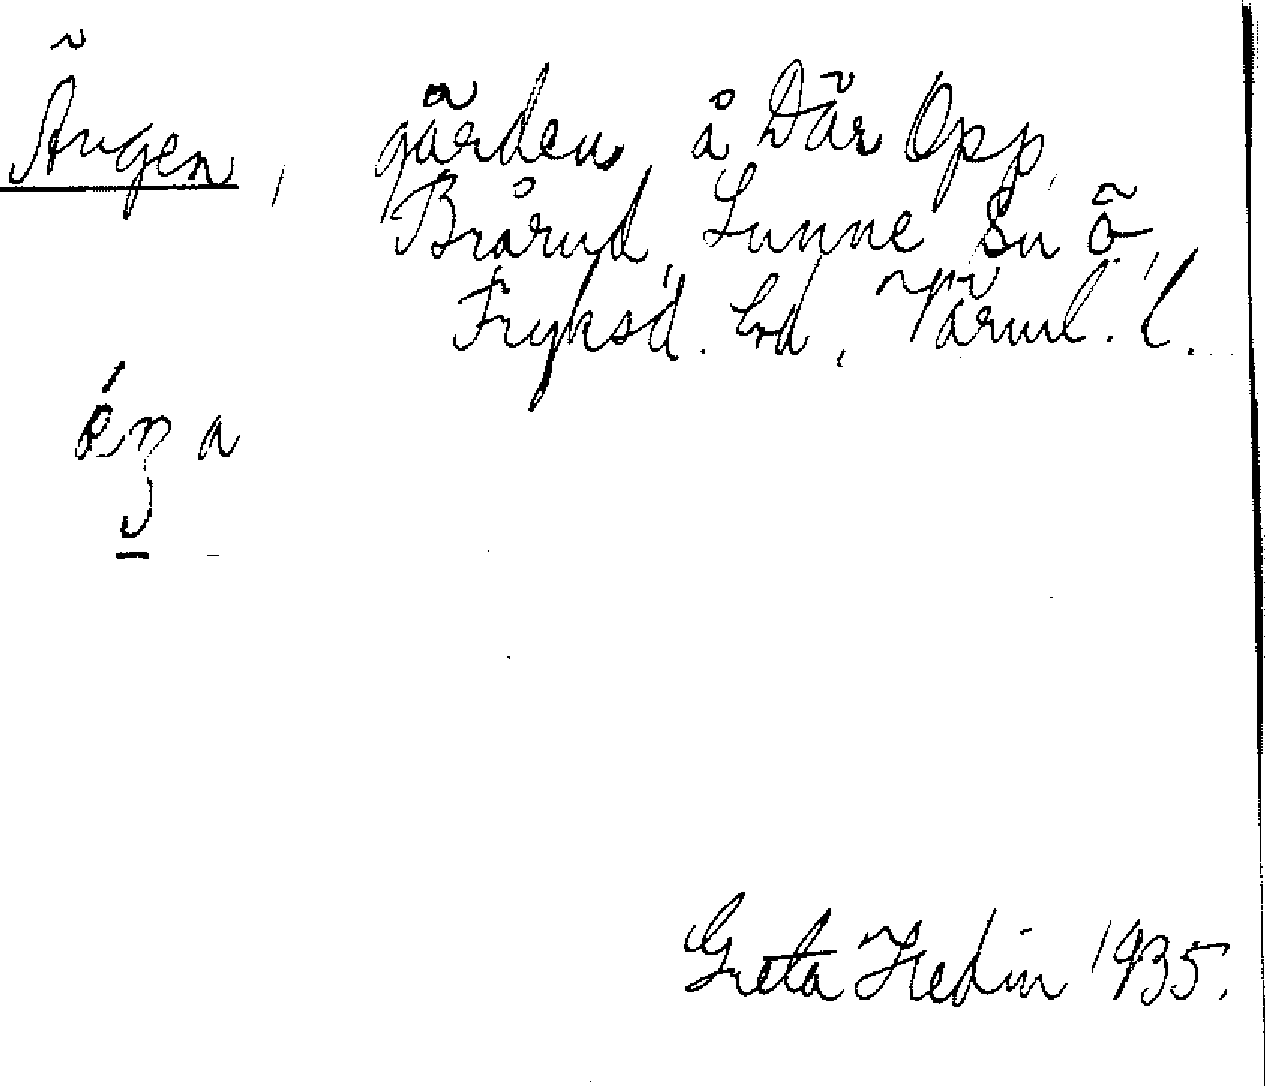 Ängen, gärden, å Där Opp,
Brårud, Sunne sn Ö,
Fryksd. hd, Värml. l.
Greta Hedin 1935.